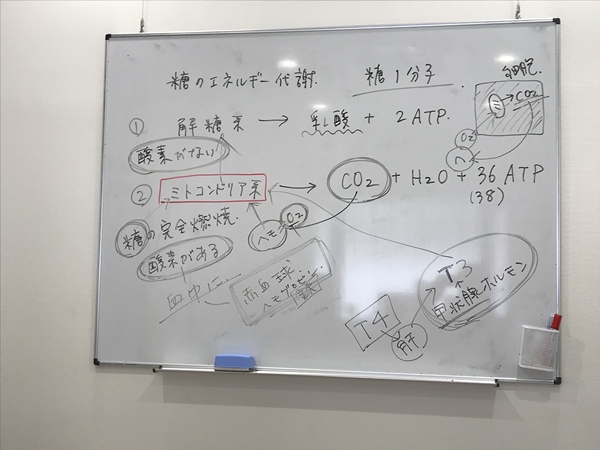 糖のエネルギー代謝. 糖1分子
細胞.
① 解糖系 → 乳酸 + 2ATP.
→CO2
O2
ヘ
酸素がない
② ミトコンドリア系 → CO2 + H2O + 36ATP
(38)
糖の完全燃焼.
ヘモ O2
酸素がある
血中に
赤血球
ヘモグロビン.
T3
甲状腺ホルモン
T4
肝